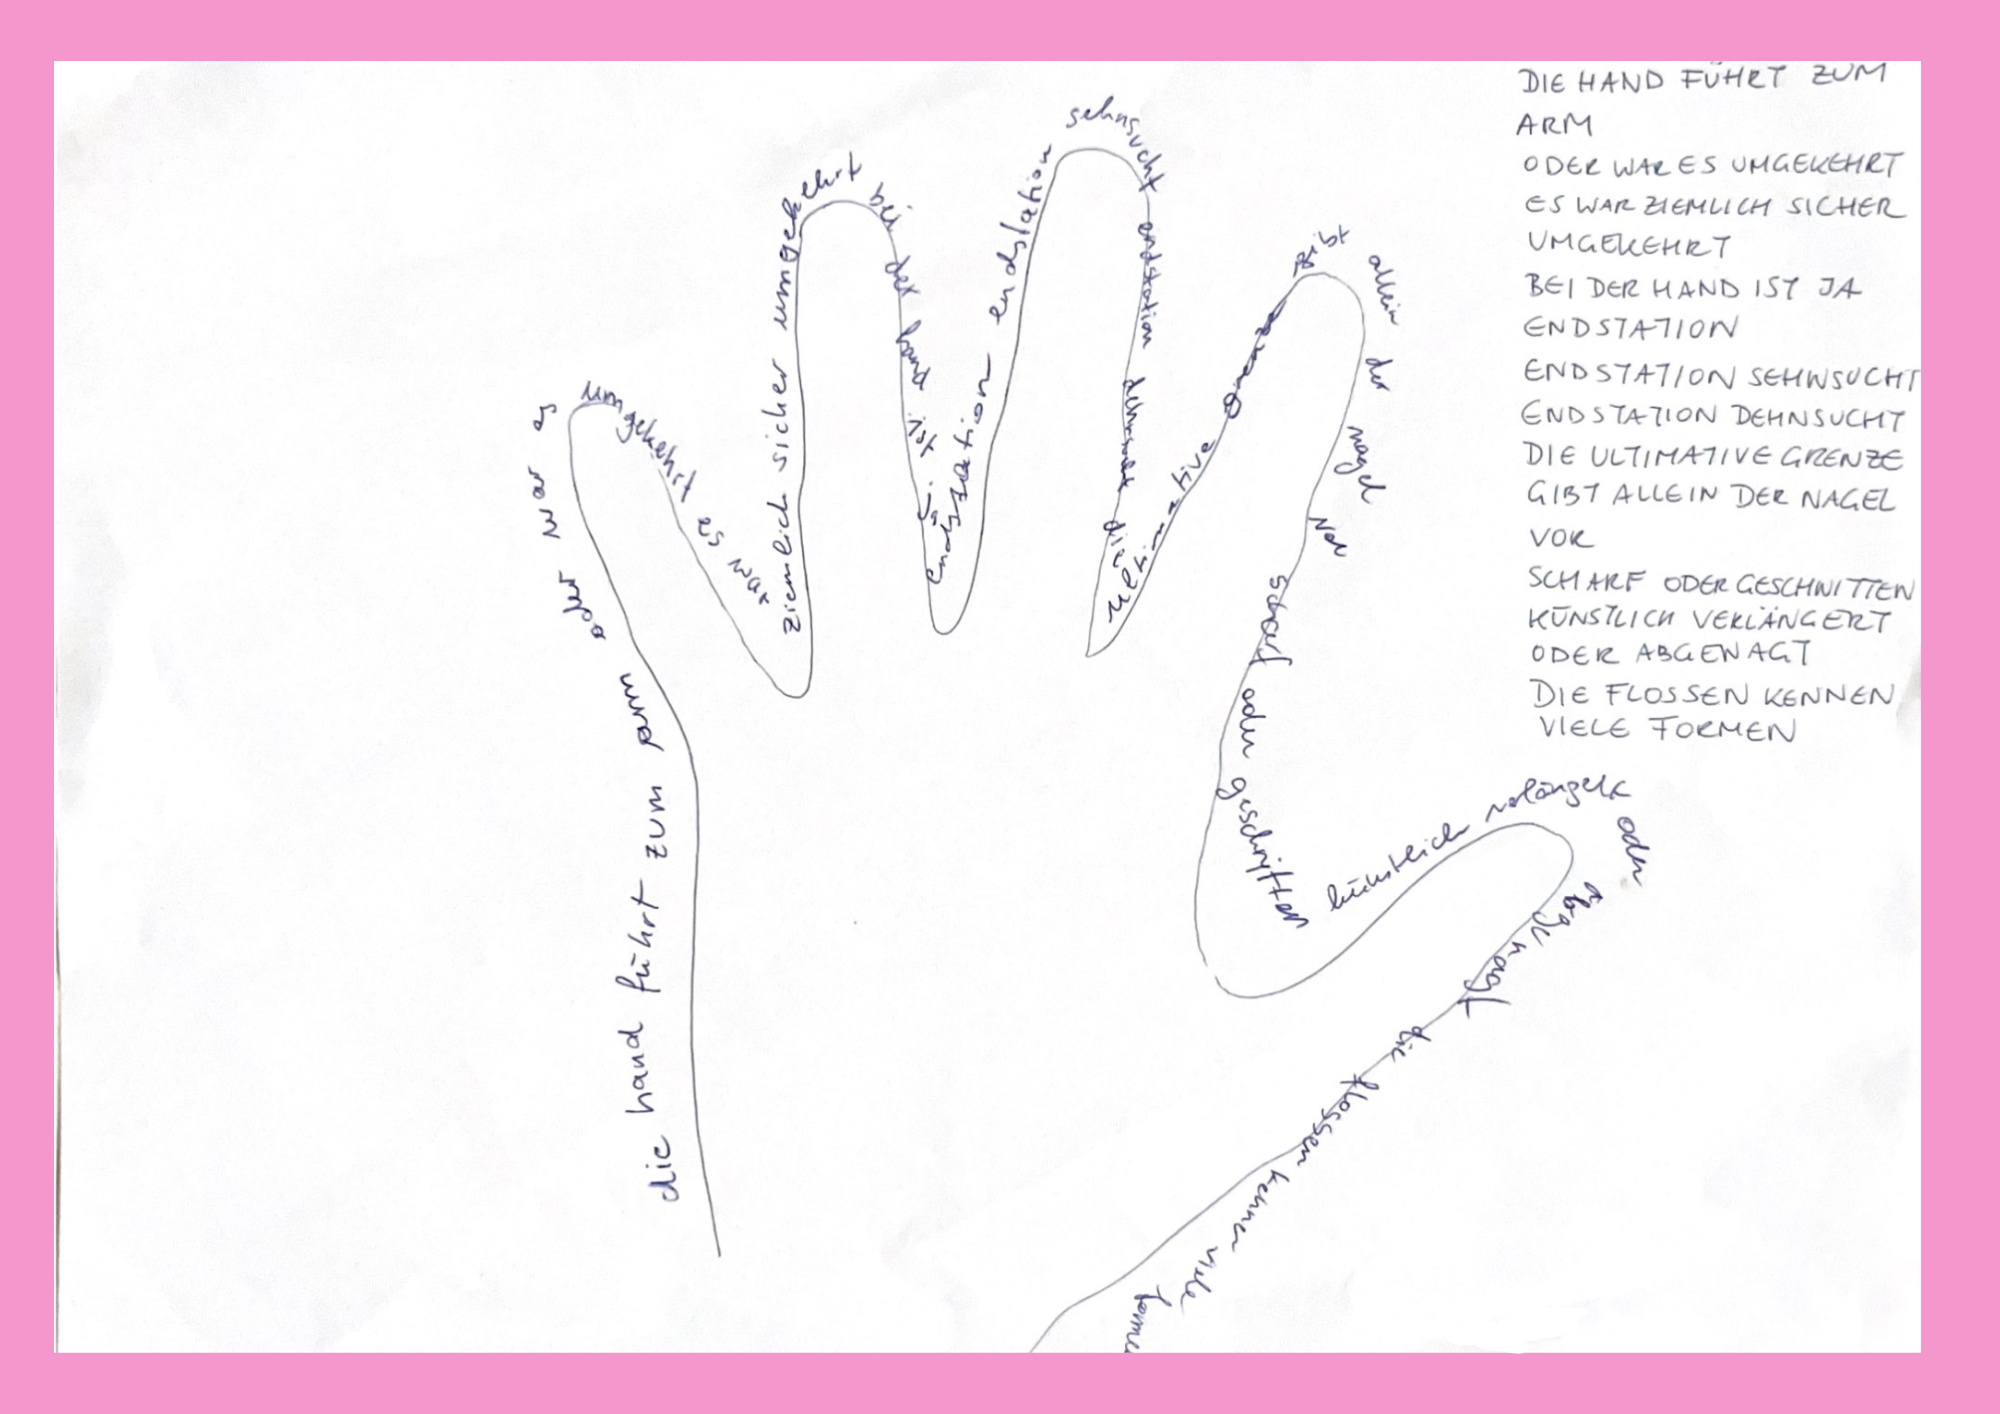 DIE HAND FÜHRT ZUM
ARM
ODER WAR ES UMGEKEHRT
ES WAR ZIEMLICH SICHER
UMGEKEHRT
BEI DER HAND IST JA
ENDSTATION
ENDSTATION SEHNSUCHT
ENDSTATION DEHNSUCHT
DIE ULTIMATIVE GRENZE
GIBT ALLEIN DER NAGEL
VOR
SCHARF ODER GESCHNITTEN
KÜNSTLICH VERLÄNGERT
ODER ABGENAGT
DIE FLOSSEN KENNEN
VIELE FORMEN
die hand führt zum arm oder war es umgekehrt es war
ziemlich sicher umgekehrt bei der hand ist ja
endstation endstation sehnsucht endstation dehnsucht die
ultimative grenze gibt allein der nagel vor scharf oder geschnitten
künstlich verlängert oder abgenagt die flossen kennen viele formen